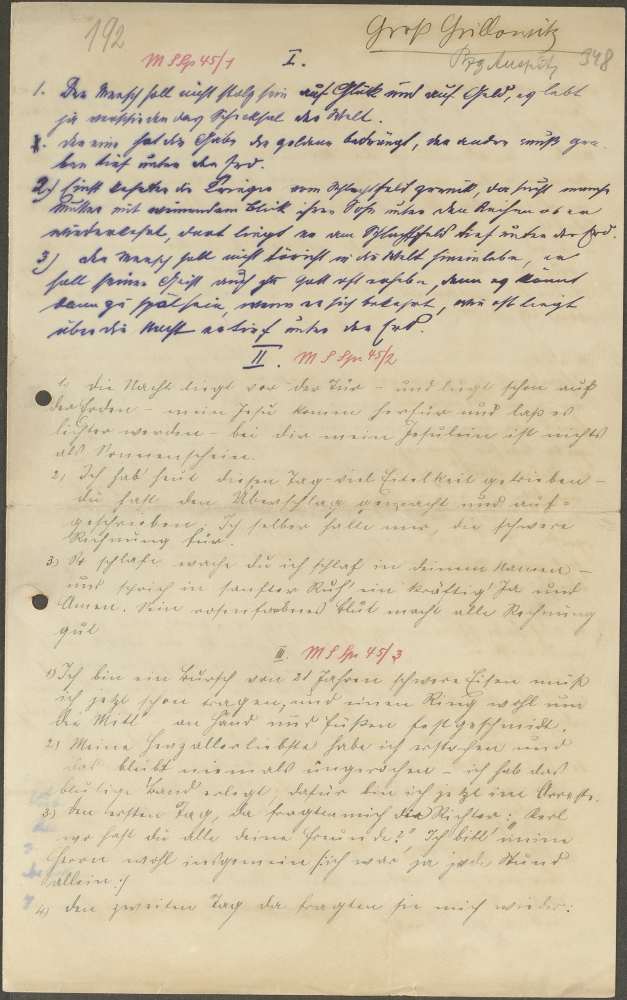 192
Groß Grillowitz
Bzg Auspitz 348
M S Sp 45/1
I.
1. Der Mensch soll nicht stolz sein auf Glück und auf Geld, es lebt
ja verschieden das Schicksal der Welt.
der eine hat die Gabe die goldene der andre muß gra-
ben tief unter der Erd.
2.) Einst kehrten die Krieger vom Schlachtfeld zurück, da sucht manche
Mutter mit weinendem Blick ihren Sohn unter den Reihen ob er
wiederkehrt, dort liegt er am Schlachtfeld tief unter der Erd.
3) der Mensch soll nicht töricht in die Welt hineinlebe, er
soll seinen Geist auch zu Gott oft erheben, denn es könnt
dann zu spät sein, wenn er sich bekehrt, wie oft liegt
über die Nacht er tief unter der Erd.
II. M S Sp 45/2
1) die Nacht liegt vor der Tür - und liegt schon auf
der Erden - mein Jesu komm herfür und laß es
lichter werden - bei dir mein Jesulein ist nichts
als Sonnenschein.
2) Ich hab heut diesen Tag viel Eitelkeit getrieben -
du hast den Überschlag gemacht und auf-
geschrieben, Ich selber halte mir, die schwere
Rechnung für.
3) schlafe wache du ich schlaf in deinem Namen -
und sprich in sanfter Ruh' ein kräftig Ja und
Amen. Dein rosenfarbenes Blut macht alle Rechnung
gut
III. M S Sp 45/3
1) Ich bin ein Bursch von 21 Jahren schwere Eisen muß
ich jetzt schon tragen, und einen Ring wohl um
die Mitt' an Händ und Füßen fest geschmidt.
2) Meine Herzallerliebste habe ich erstochen und
das bleibt niemals ungerochen - ich hab das
blutige Band erlegt, dafür bin ich jetzt im Arreste.
3) Den ersten Tag, da fragten mich die Richter: Kerl
wo hast du alle deine Freunde?" Ich bitt' meine
Herrn wohl insgemein ich war ja jede Stund
allein :/
4) den zweiten Tag da fragten sie mich wieder: